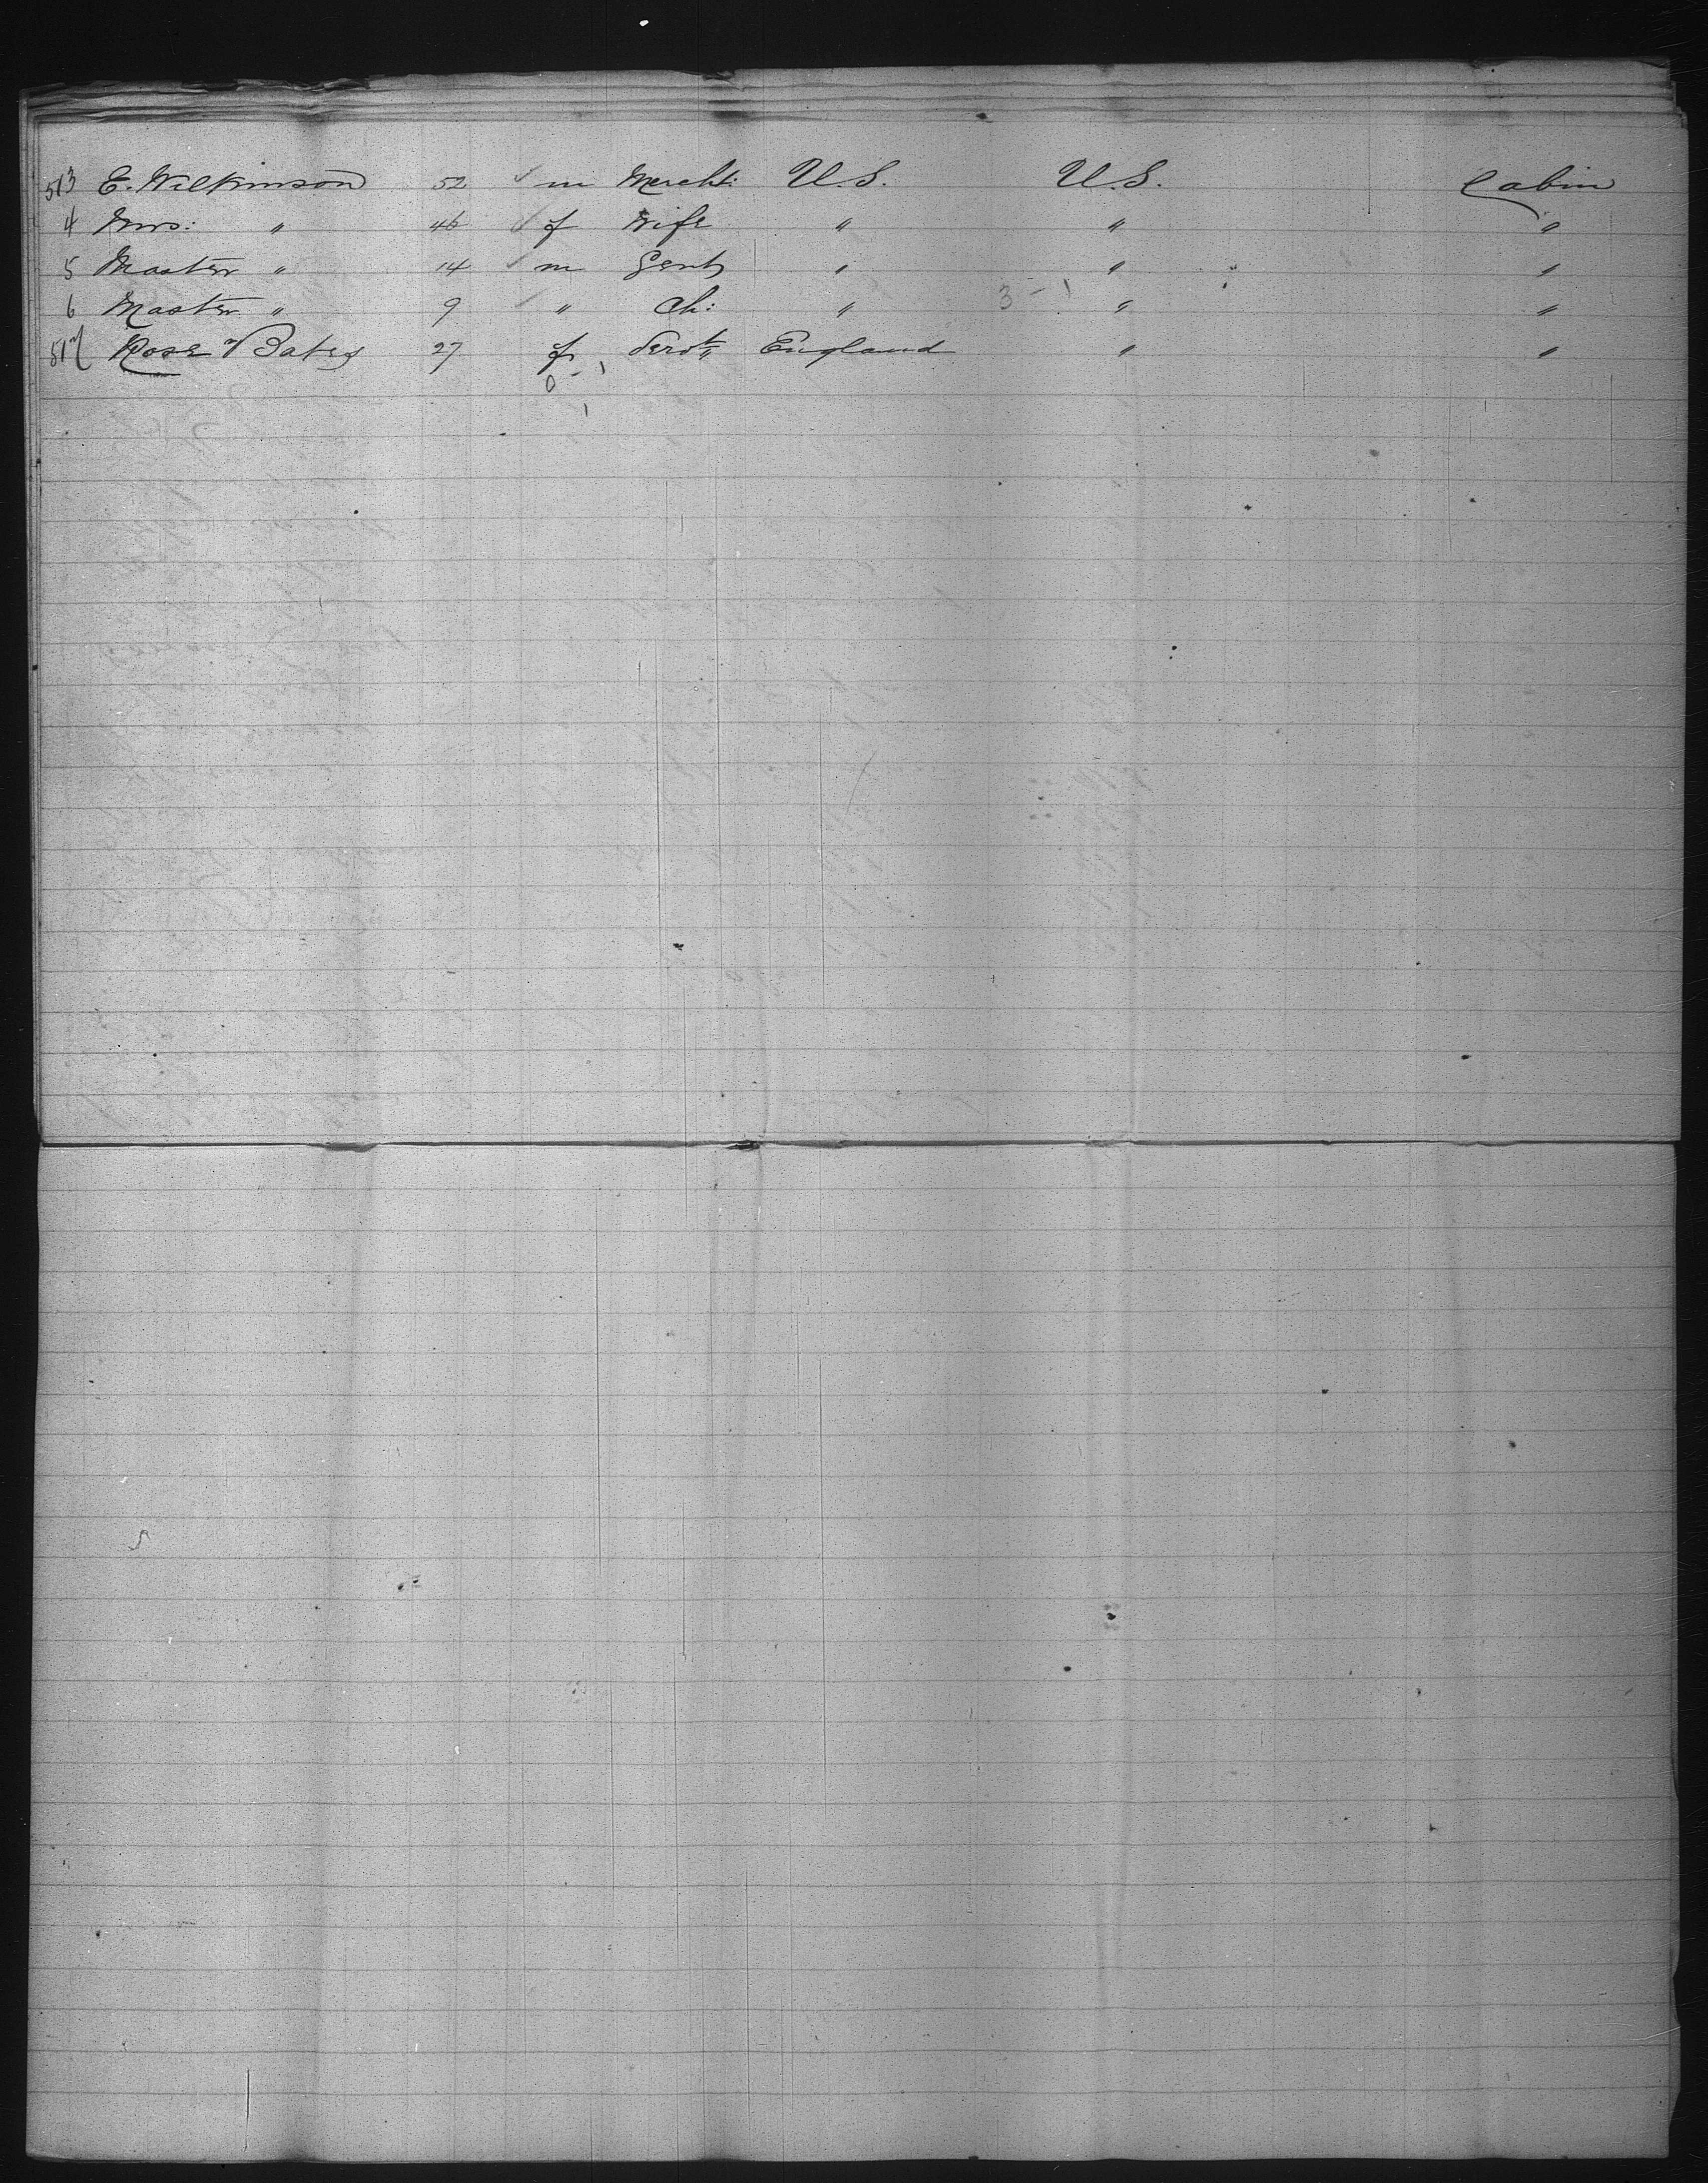 513 E. Wilkinson 52 ✓ m Mercht: U.S. U.S. Cabin
4 Mrs: " 46 ✓ f Wife " " "
5 Master " 14 ✓ m Gent " " "
6 Master " 9 ✓ " Ch: " 3 - 1 " "
517 Rose Bates 27 f Servt England " "
0 - 1
1